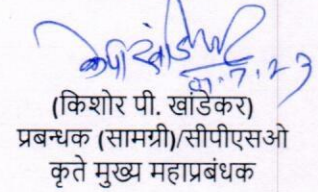 (किशोर पी. खांडेकर)
प्रबन्धक (सामग्री)/सीपीएसओ
कृते मुख्य महाप्रबंधक